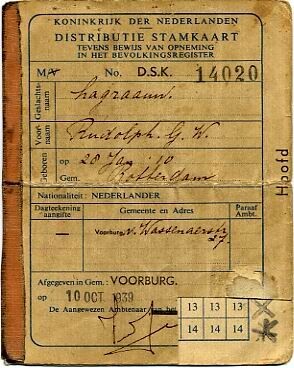 KONINKRIJK DER NEDERLANDEN
DISTRIBUTIE STAMKAART
TEVENS BEWIJS VAN OPNEMING
IN HET BEVOLKINGSREGISTER
No. D.S.K. 14020
Geslachtsnaam Lagraauw.
Voornaam Rudolph. G. W.
Geboren op 28 Jan. '10
Gem. Rotterdam
Nationaliteit: NEDERLANDER
Dagteekening aangifte Gemeente en Adres Paraaf Ambt.
— Voorburg, v. Wassenaerstr
27
Afgegeven in Gem: VOORBURG.
op 10 OCT. 1939
De Aangewezen Ambtenaar van het
13 13 13
14 14 14
Hoofd